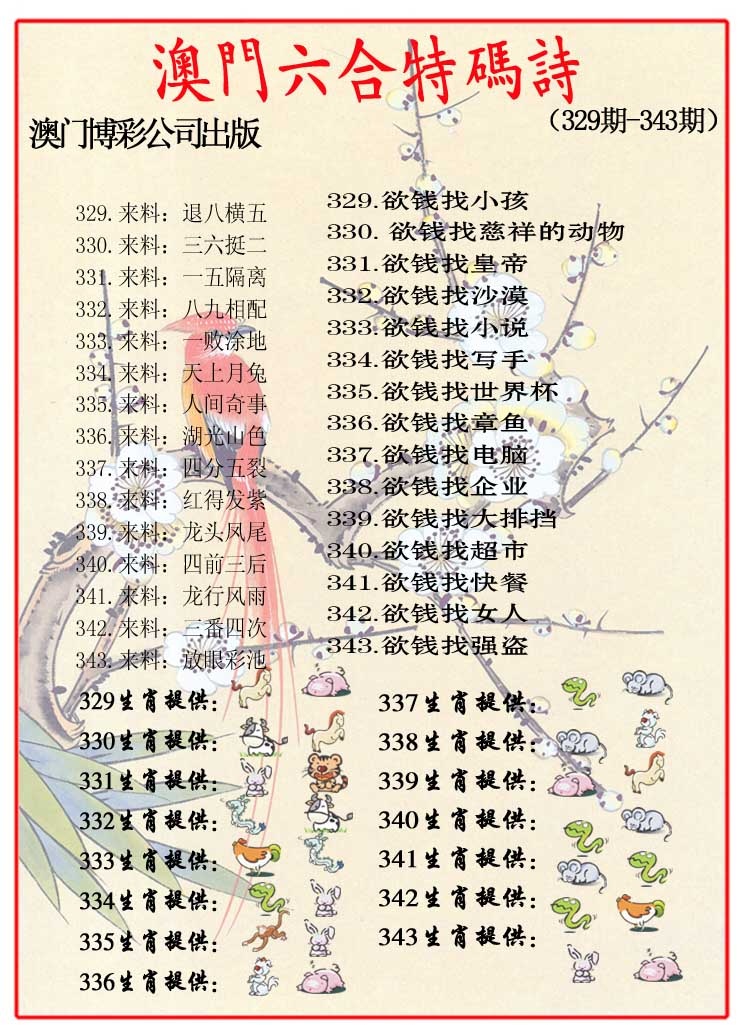 澳門六合特碼詩
澳门博彩公司出版
（329期-343期）
329.来料：退八横五
330.来料：三六挺二
331.来料：一五隔离
332.来料：八九相配
333.来料：一败涂地
334.来料：天上月兔
335.来料：人间奇事
336.来料：湖光山色
337.来料：四分五裂
338.来料：红得发紫
339.来料：龙头风尾
340.来料：四前三后
341.来料：龙行风雨
342.来料：三番四次
343.来料：放眼彩池
329.欲钱找小孩
330. 欲钱找慈祥的动物
331.欲钱找皇帝
332.欲钱找沙漠
333.欲钱找小说
334.欲钱找写手
335.欲钱找世界杯
336.欲钱找章鱼
337.欲钱找电脑
338.欲钱找企业
339.欲钱找大排挡
340.欲钱找超市
341.欲钱找快餐
342.欲钱找女人
343.欲钱找强盗
329生肖提供：
330生肖提供：
331生肖提供：
332生肖提供：
333生肖提供：
334生肖提供：
335生肖提供：
336生肖提供：
337生肖提供：
338生肖提供：
339生肖提供：
340生肖提供：
341生肖提供：
342生肖提供：
343生肖提供：